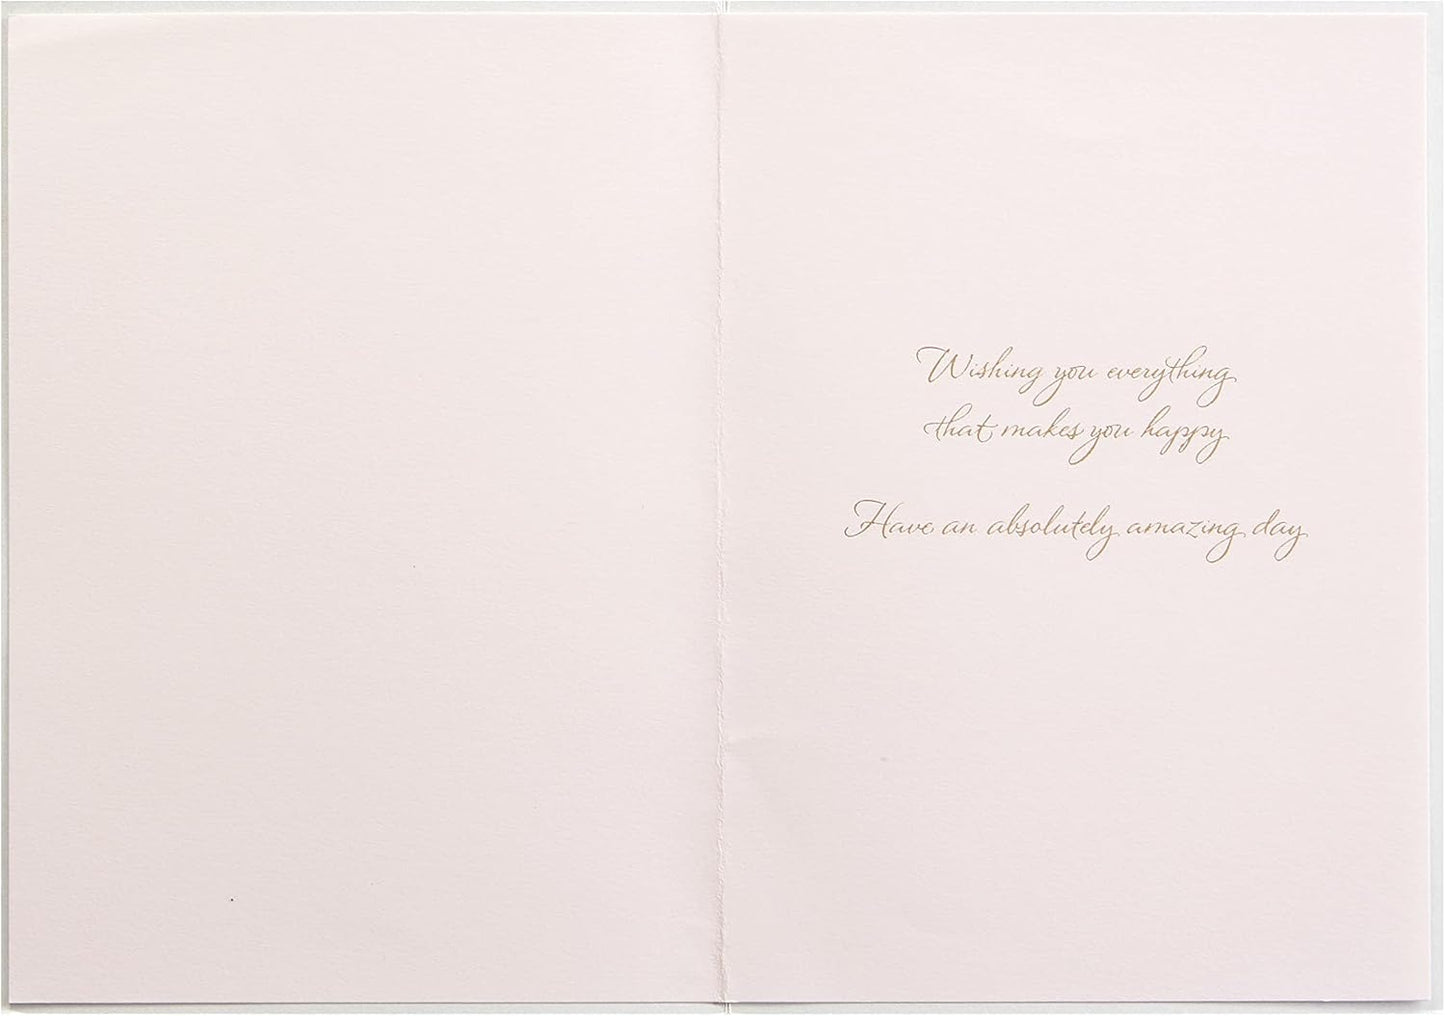 Wishing you everything
that makes you happy
Have an absolutely amazing day